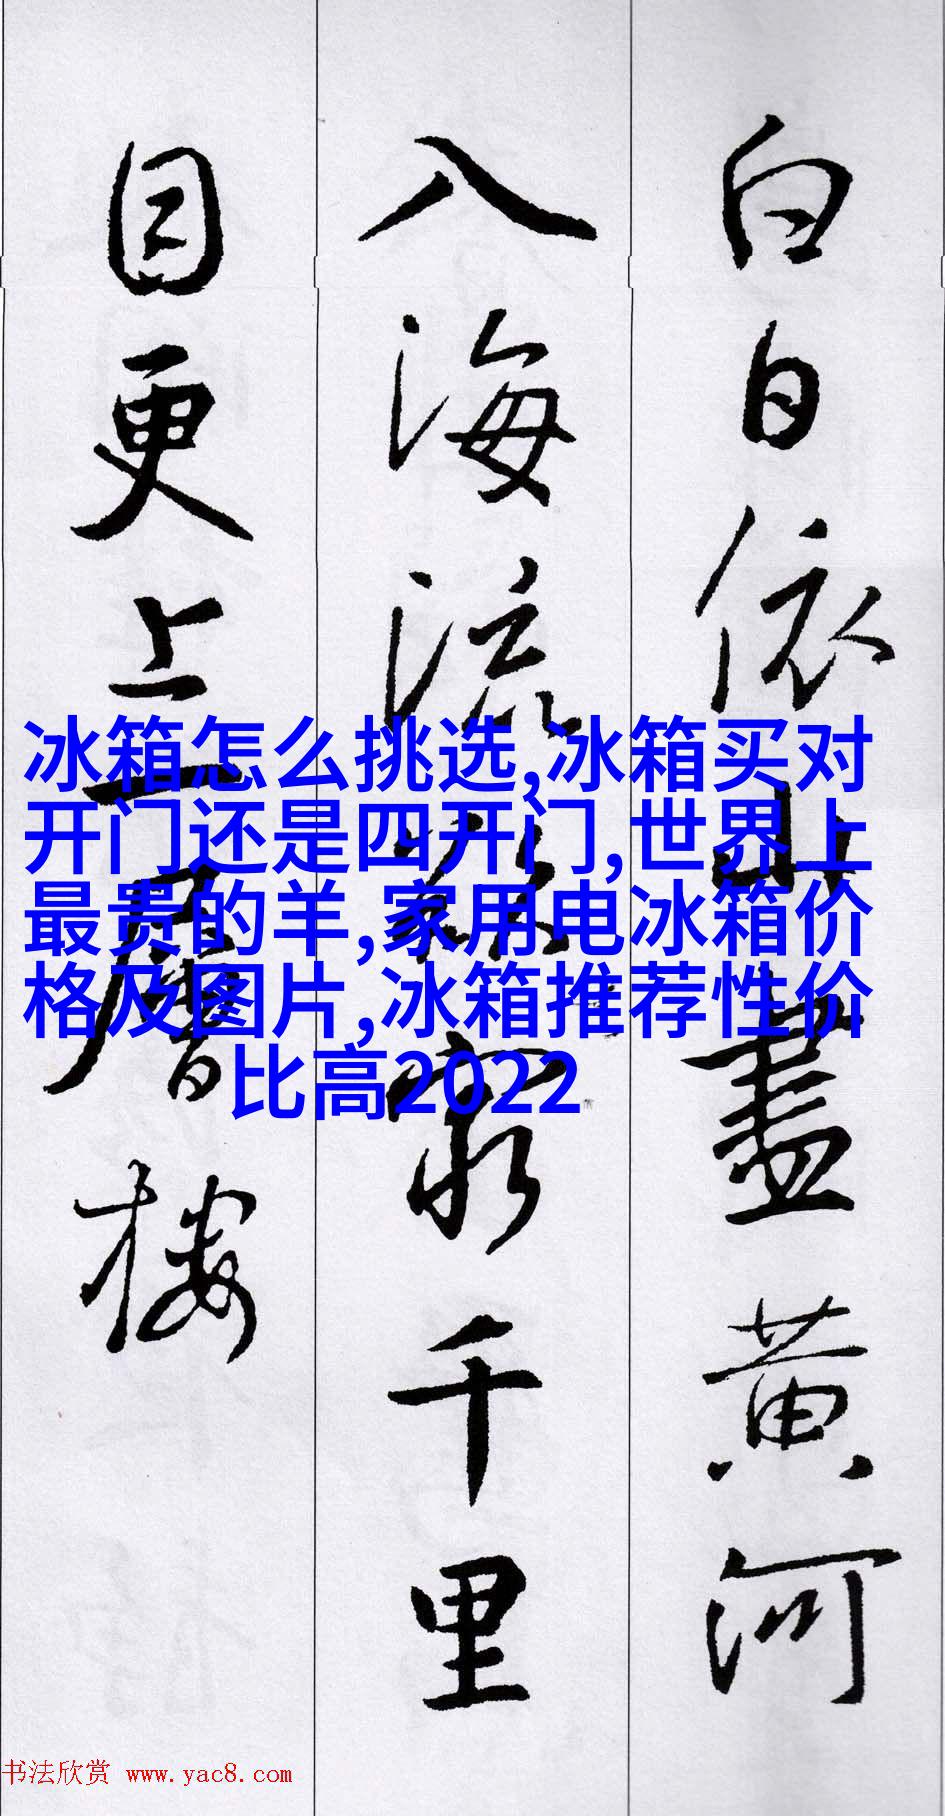 白日依山盡黄河
入海流欲窮千里
目更上一層樓
冰箱怎么挑选,冰箱买对
开门还是四开门,世界上
最贵的羊,家用电冰箱价
格及图片,冰箱推荐性价
比高2022
书法欣赏 www.yac8.com